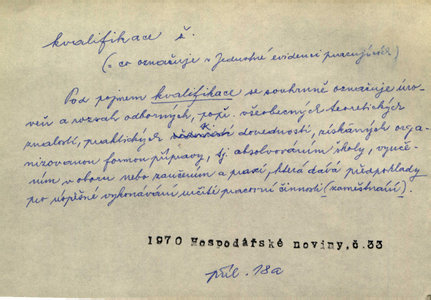 kvalifikace ž.
(= co označuje v Jednotné evidenci pracujících)
Pod pojmem kvalifikace se souhrnně označuje úro-
veň a rozsah odborných, popř. všeobecných teoretických
znalostí, praktických dovedností, získaných orga-
nizovanou formou přípravy, tj. absolvováním školy, vyuče-
ním v oboru nebo zaučením a praxí, která dává předpoklady
pro úspěšné vykonávání určité pracovní činnosti (zaměstnání).
1970 Hospodářské noviny, č.33
příl. 18a